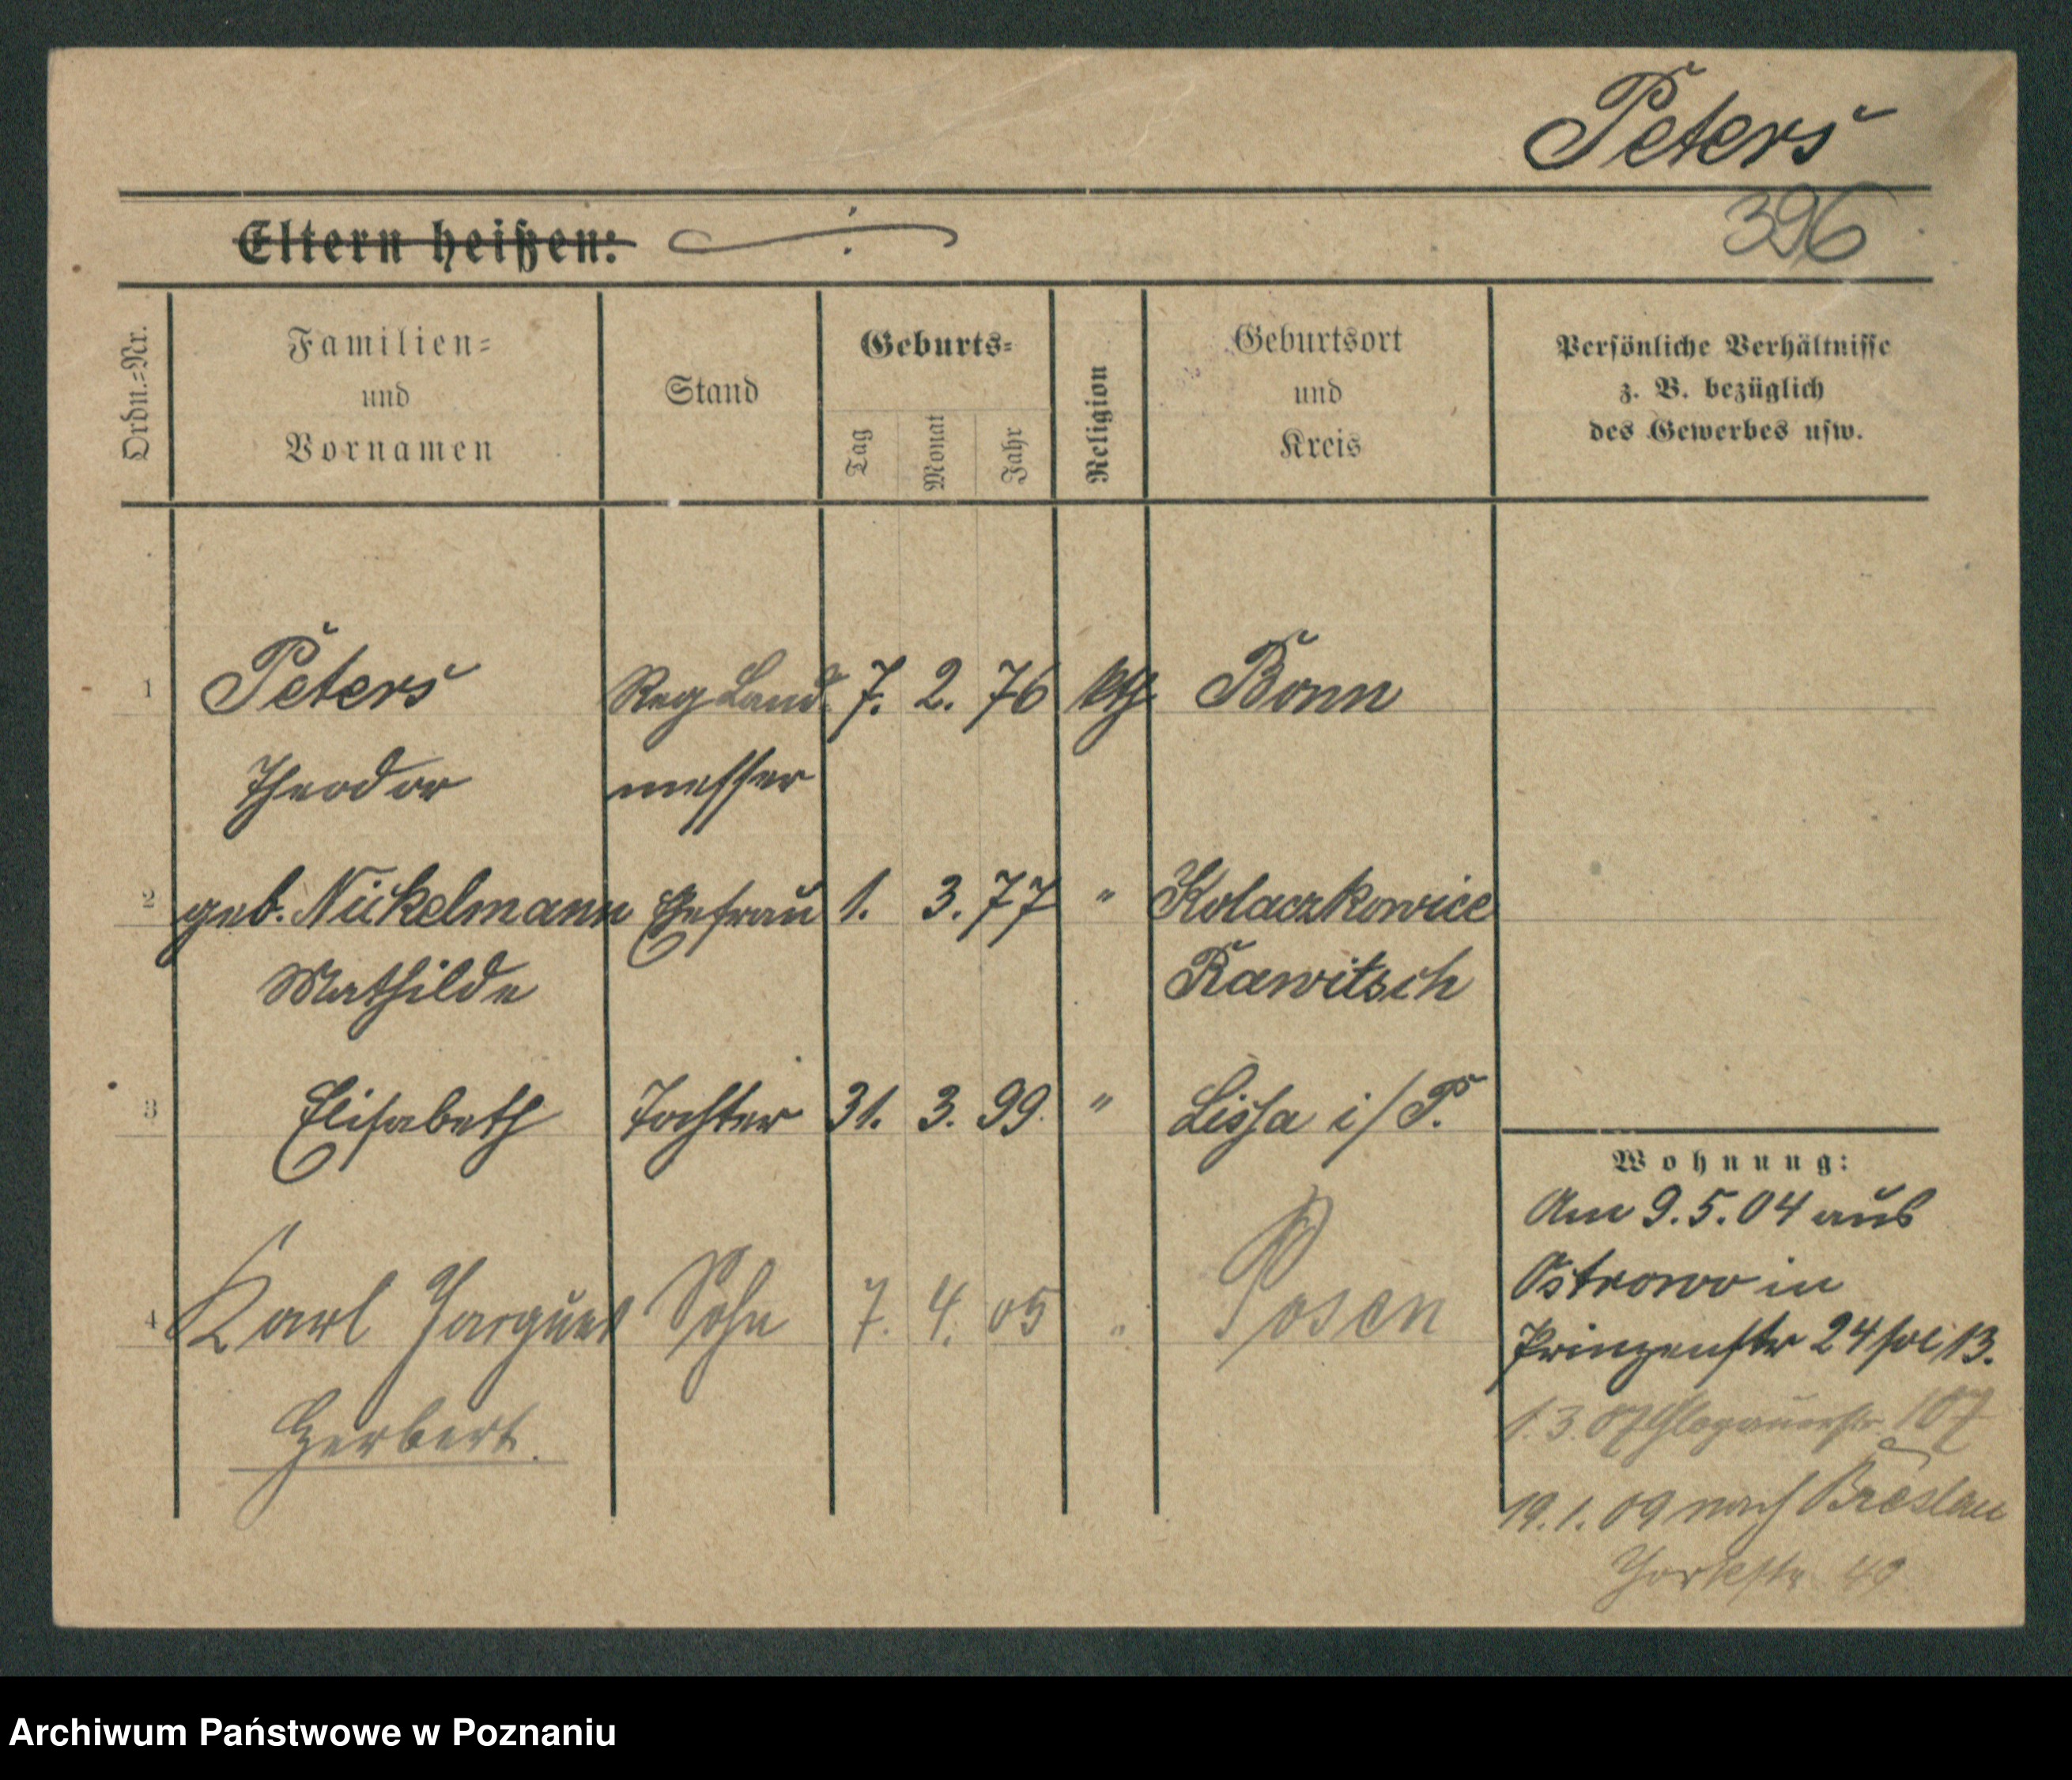 Peters
396
Eltern heißen: ÷
Ordn.=Nr.
Familien=
und
Vornamen
Stand
Geburts=
Tag
Monat
Jahr
Religion
Geburtsort
und
Kreis
Persönliche Verhältnisse
z. B. bezüglich
des Gewerbes usw.
1 Peters Reg Land 7. 2. 76 kth Bonn
Theodor messer
2 geb. Nickelmann Ehefrau 1. 3. 77 " Kolaczkowice
Mathilde Rawitsch
3 Elisabeth Tochter 31. 3. 99. " Lissa i/P.
4 Karl Sohn 7. 4. 05 " Posen
Herbert.
Wohnung:
Am 9.5.04 aus
Ostrowo in
Prinzenstr 24 13.
1.3.07 Glogauerstr 107
19.1.09 nach Breslau
Yorkstr 49
Archiwum Państwowe w Poznaniu